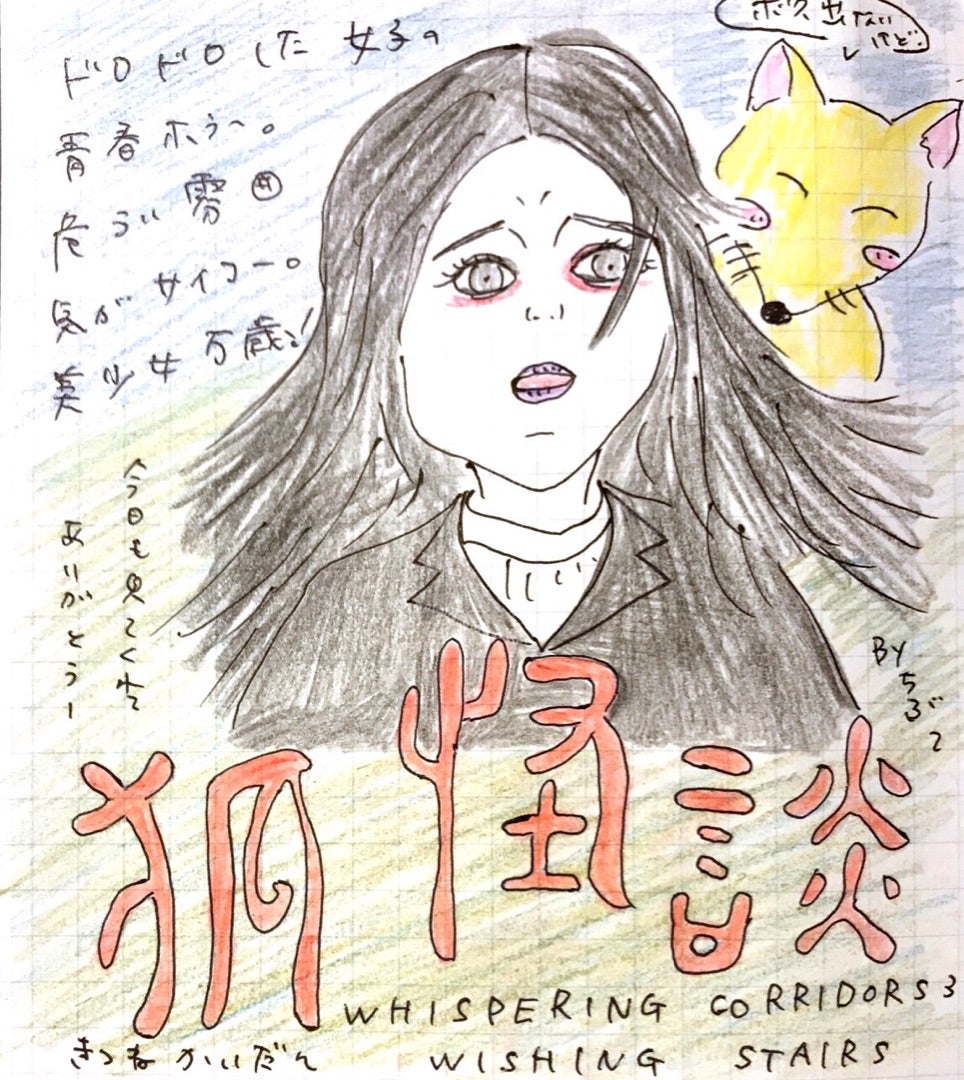 ボク出てないけど。
ドロドロした女子の
青春ホラー。
危うい雰囲
気がサイコー。
美少女万歳!
今日も見てくれて
ありがとうー
Byちぶ
狐怪談
WHISPERING CORRIDORS 3
きつねかいだん
WISHING STAIRS